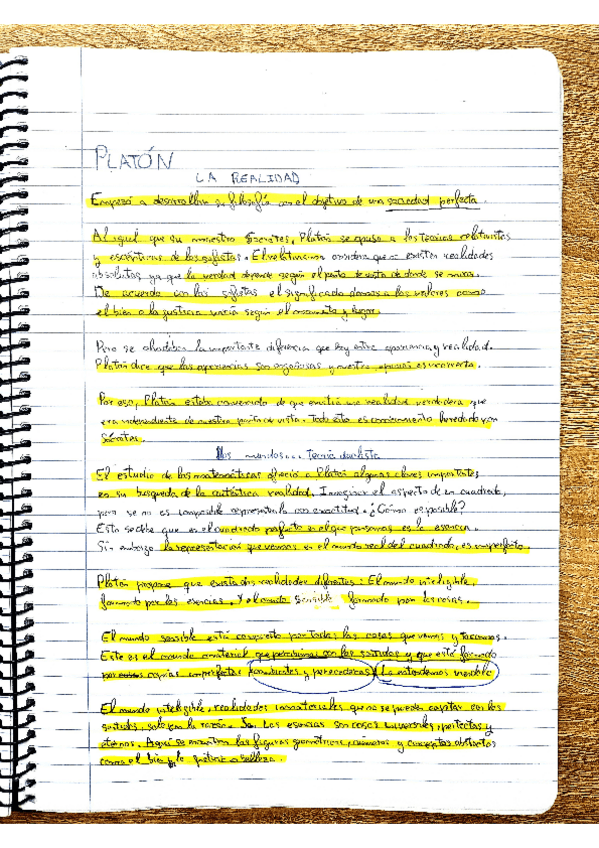 PLATÓN
LA REALIDAD
Empezó a desarrollar su filosofía con el objetivo de una sociedad perfecta.
Al igual que su maestro Sócrates, Platón se opuso a las teorías relativistas
y escépticas de los sofistas. El relativismo considera que no existen realidades
absolutas ya que la verdad depende según el punto de vista de donde se mira.
De acuerdo con los sofistas el significado damos a los valores como
el bien o la justicia varía según el momento y lugar.
Pero se olvidaban la importante diferencia que hay entre apariencia y realidad.
Platón dice que las apariencias son engañosas y nuestra opinión es incorrecta.
Por eso, Platón estaba convencido de que existía una realidad verdadera que
era independiente de nuestro punto de vista. Todo esto es conocimiento heredado por
Sócrates.
Dos mundos... Teoría dualista
El estudio de las matemáticas ofreció a Platón algunas claves importantes
en su búsqueda de la auténtica realidad. Imaginar el aspecto de un cuadrado,
pero se no es imposible representarlo con exactitud. ¿Cómo es posible?
Esto se debe que es el cuadrado perfecto es el que pensamos es la esencia.
Sin embargo la representación que vemos en el mundo real del cuadrado, es imperfecto.
Platón propone que existe dos realidades diferentes: El mundo inteligible,
formado por las esencias. Y el mundo sensible formado por las cosas.
El mundo sensible está compuesto por todas las cosas que vemos y tocamos.
Este es el mundo material que percibimos con los sentidos y que está formado
por copias imperfectas cambiantes y perecederas (Lo entendemos invisible
El mundo inteligible, realidades inmateriales que no se pueden captar con los
sentidos, solo con la razón. Las esencias son cosas universales, perfectas y
eternas. Aquí se encuentran las figuras geométricas, números y conceptos abstractos
como el bien, la justicia o belleza.